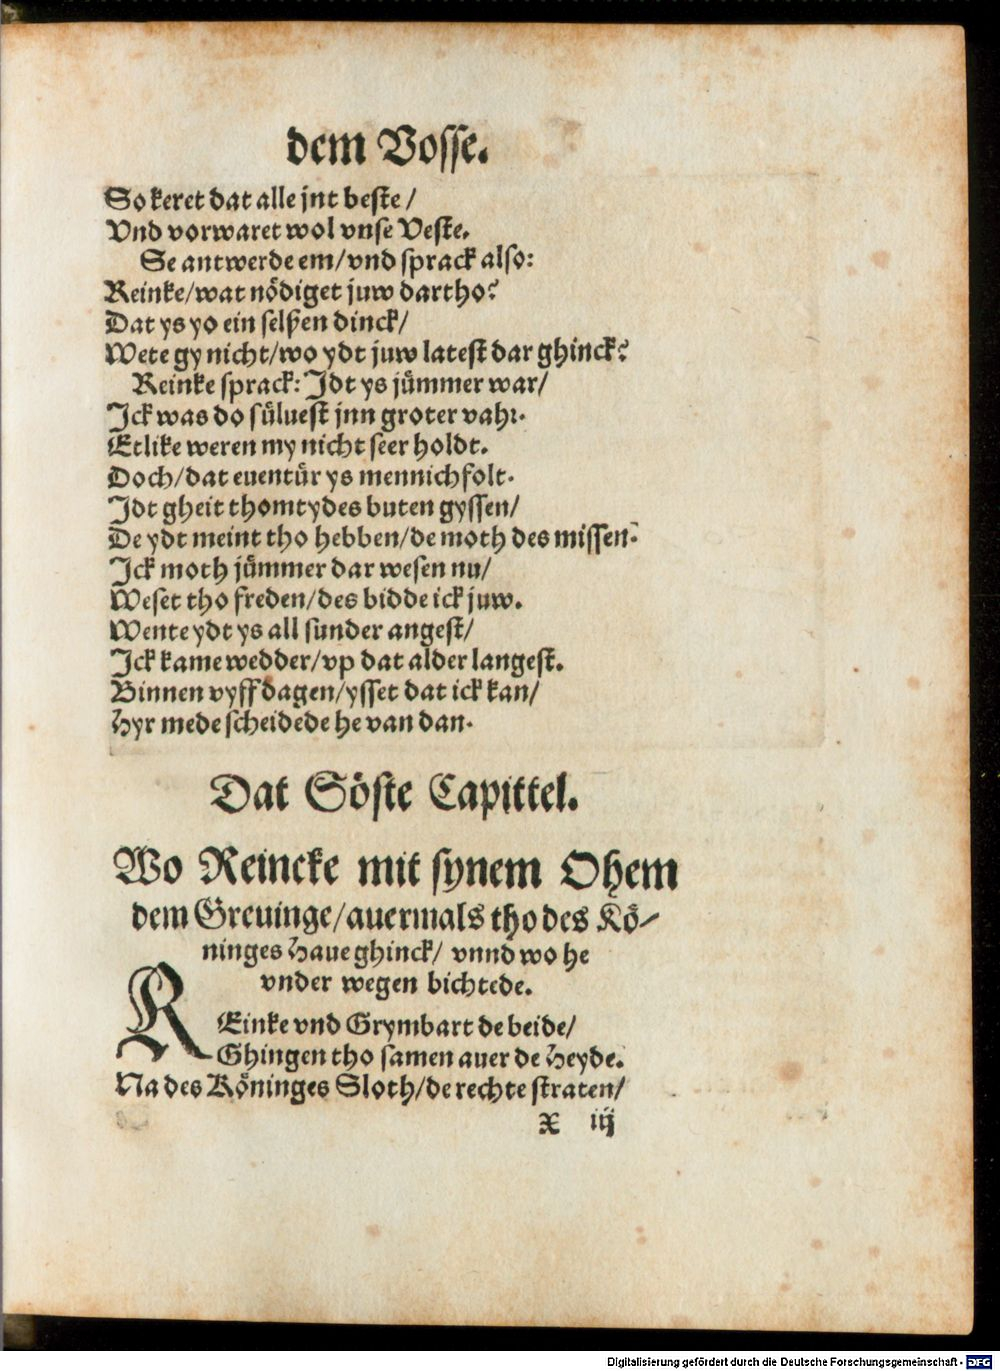 dem Vosse.
So keret dat alle jnt beste /
Vnd vorwaret wol vnse Veste.
Se antwerde em/vnd sprack also:
Reinke/wat nödiget juw dartho?
Dat ys yo ein seltzen dinck/
Wete gy nicht/wo ydt juw latest dar ghinck?
Reinke sprack: Idt ys jümmer war/
Ick was do sülvest jnn groter vahr.
Etlike weren my nicht seer holdt.
Doch/dat euentür ys mennichfolt.
Idt gheit thomtydes buten gyssen/
De ydt meint tho hebben/de moth des missen.
Ick moth jümmer dar wesen nu/
Weset tho freden/des bidde ick juw.
Wente ydt ys all sunder angest/
Ick kame wedder/vp dat alder langest.
Binnen vyff dagen/ysset dat ick kan/
Hyr mede scheidede he van dan.
Dat Söste Capittel.
Wo Reincke mit synem Ohem
dem Greuinge/auermals tho des Kö-
ninges Haue ghinck/ vnnd wo he
vnder wegen bichtede.
REinke vnd Grymbart de beide/
Ghingen tho samen auer de Heyde.
Na des Köninges Sloth/de rechte straten/
X iij
Digitalisierung gefördert durch die Deutsche Forschungsgemeinschaft - DFG